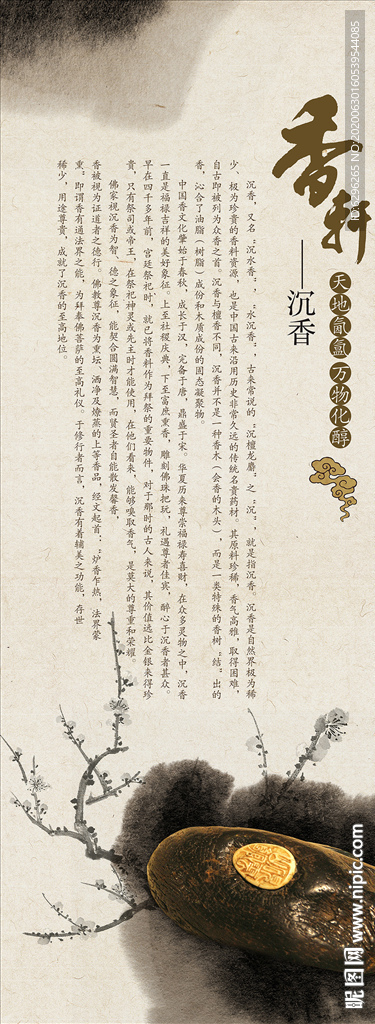 香轩
——沉香
天地氤氲 万物化醇
沉香，又名“沉水香”，“水沉香”，古来常说的“沉檀龙麝”之“沉”，就是指沉香。沉香是自然界极为稀
少、极为珍贵的香料资源，也是中国古来沿用历史非常久远的传统名贵药材。其原料珍稀，香气高雅，取得困难，
自古即被列为众香之首。沉香与檀香不同，沉香并不是一种香木（会香的木头），而是一类特殊的香树“结”出的
香，沁合了油脂（树脂）成份和木质成份的固态凝聚物。
中国香文化肇始于春秋，成长于汉，完备于唐，鼎盛于宋。华夏历来尊崇福禄寿喜财，在众多灵物之中，沉香
一直是福禄吉祥的美好象征。上至社稷庆典，下至富庶熏香，雕刻佛珠把玩，礼遇尊者佳宾，醉心于沉香者甚众。
早在四千多年前，宫廷祭祀时，就已将香料作为拜祭的重要物件，对于那时的古人来说，其价值远比金银来得珍
贵，只有祭司或帝王，在祭祀神灵或先主时才能使用，在他们看来，能够唤取香气，是莫大的尊重和荣耀。
佛家视沉香为智、德之象征，能契合圆满智慧，而贤圣者自能散发馨香，
香被视为证道者之德行。佛教尊沉香为重坛、洒净及燎蒸的上等香品，经文起首：“炉香乍热，法界蒙
熏”即谓香有通法界之能，为拜奉佛菩萨的至高礼仪。于修行者而言，沉香有着辅美之功能，存世
稀少，用途尊贵，成就了沉香的至高地位。
ID:6296265 NO:20200630160539544085
昵图网 www.nipic.com